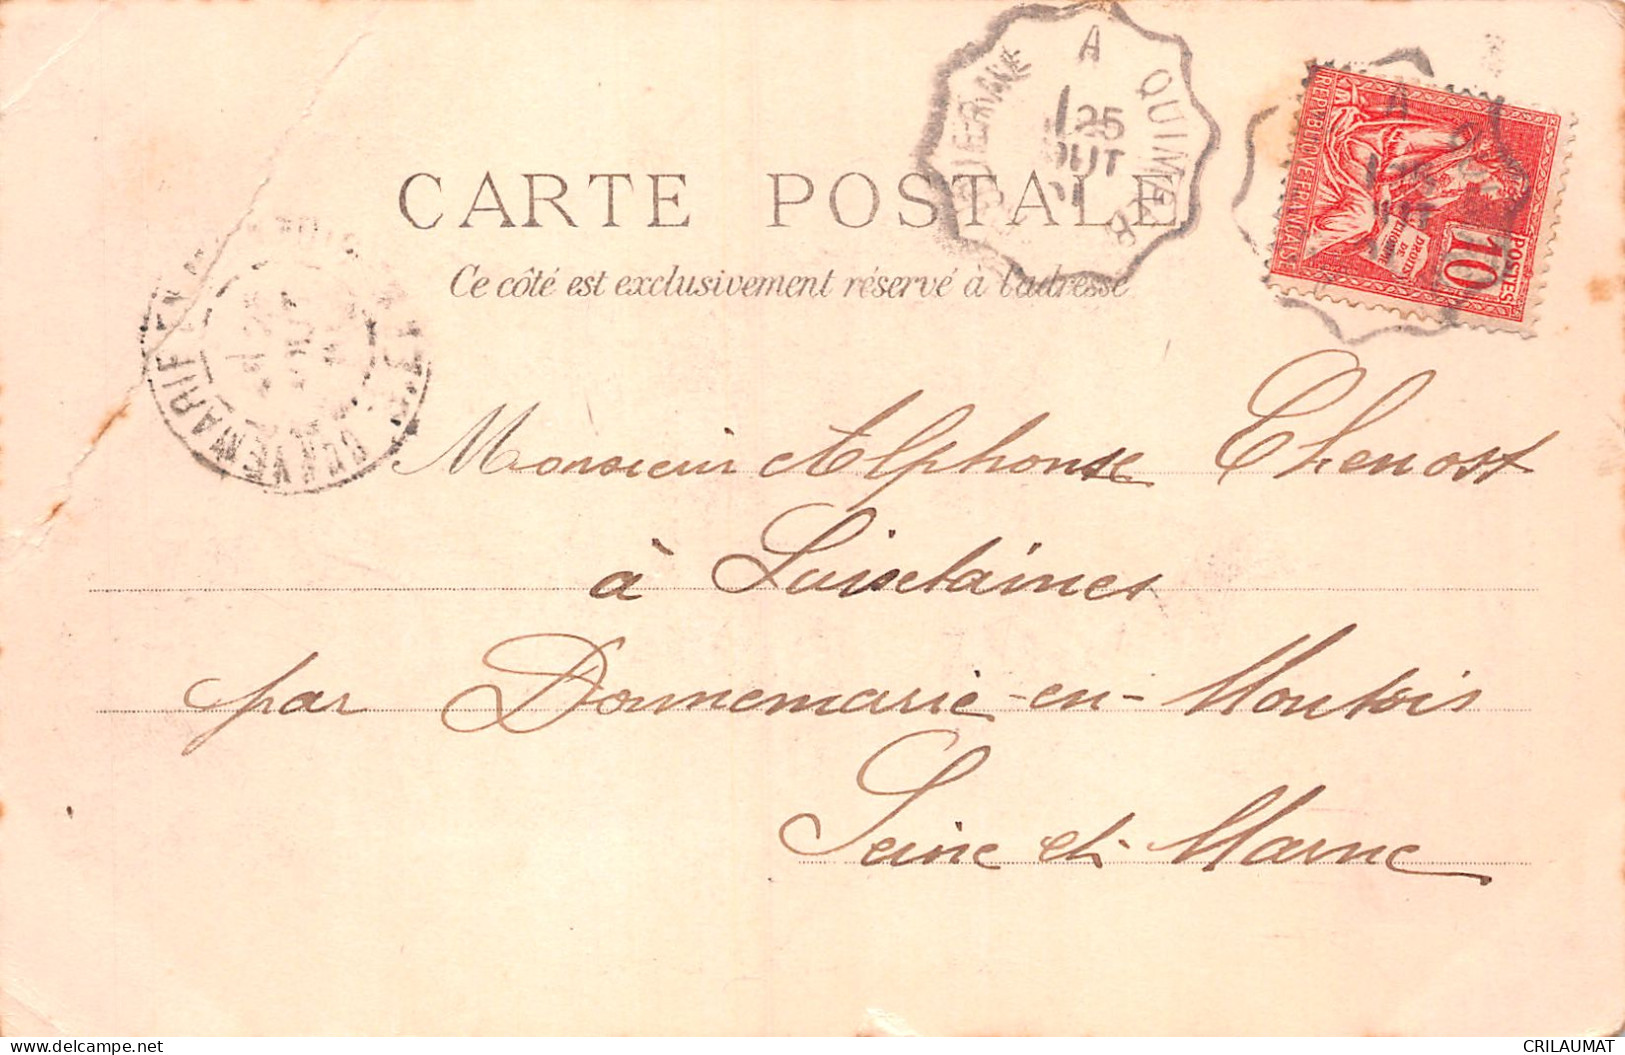 CARTE POSTALE
Ce côté est exclusivement réservé à l'adresse
A QUIMPER
25
OUT
01
REPVBLIQVE FRANÇAISE
DROITS
DE
L'HOMME
POSTES
10
Monsieur Alphonse Thenost
à Luisetaines
par Donnemarie-en-Montois
Seine et Marne
CRILAUMAT